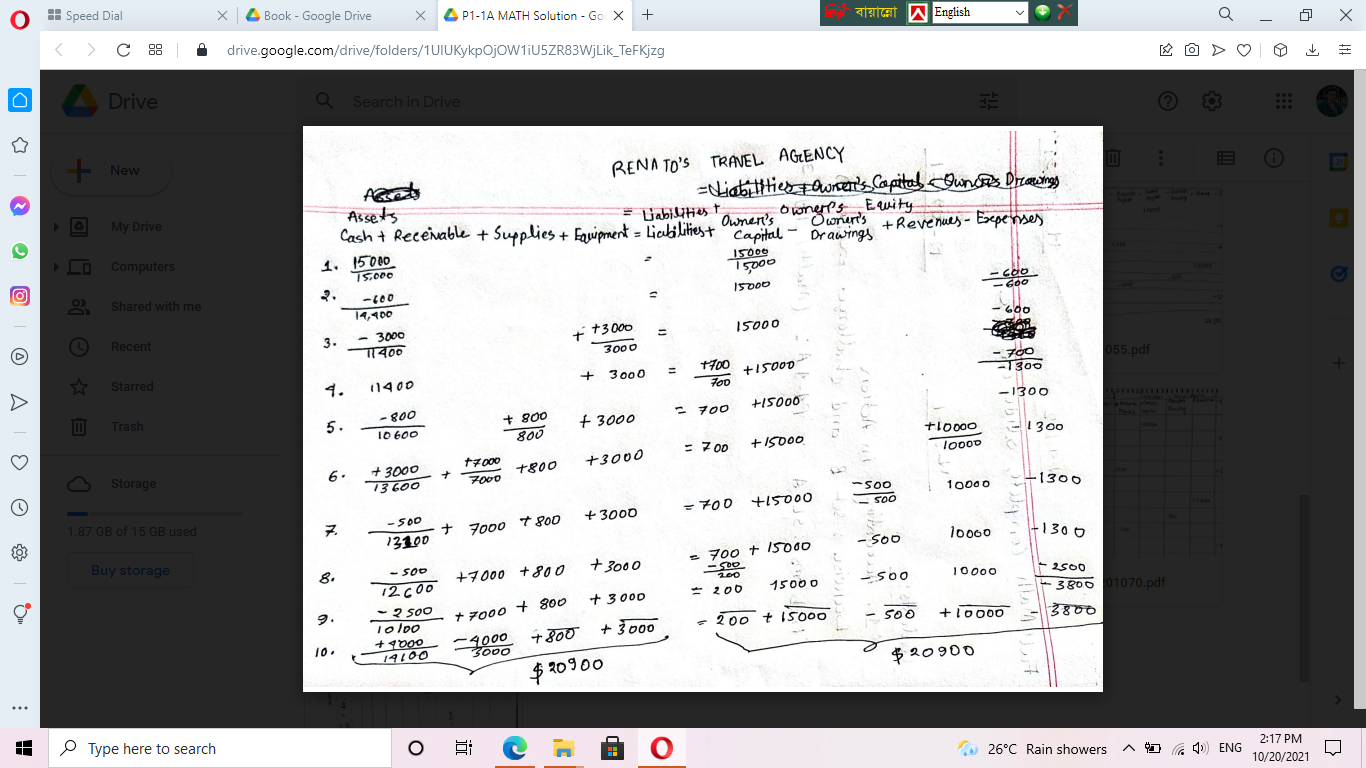 Speed Dial
Book - Google Drive
P1-1A MATH Solution - Go
বায়ান্নো
English
drive.google.com/drive/folders/1UlUKykpOjOW1iU5ZR83WjLik_TeFKjzg
Drive
Search in Drive
New
My Drive
Computers
Shared with me
Recent
Starred
Trash
Storage
1.87 GB of 15 GB used
Buy storage
055.pdf
01070.pdf
RENATO'S TRAVEL AGENCY
= Liabilities + Owner's Capital - Owner's Drawings
Assets = Liabilities + Owner's Equity
Cash + Receivable + Supplies + Equipment = Liabilities + Owner's Capital - Owner's Drawings + Revenues - Expenses
1. 15000 = 15000
15.000 15,000
2. -600 = 15000 -600
14,400 -600
3. -3000 + +3000 = 15000 -600
11400 3000 -700
-1300
4. 11400 + 3000 = +700 +15000 -1300
700
5. -800 +800 +3000 = 700 +15000 -1300
10600 800
6. +3000 + +7000 +800 +3000 = 700 +15000 +10000 -1300
13600 7000 10000
7. -500 + 7000 +800 +3000 = 700 +15000 -500 10000 -1300
13100 -500
8. -500 +7000 +800 +3000 = 700 +15000 -500 10000 -1300
12600 -500
200
9. -2500 +7000 +800 +3000 = 200 15000 -500 10000 -2500
10100 -3800
10. +4000 -4000 +800 +3000 = 200 +15000 -500 +10000 -3800
14100 3000
$20900 $20900
Type here to search
26°C Rain showers
ENG
2:17 PM
10/20/2021